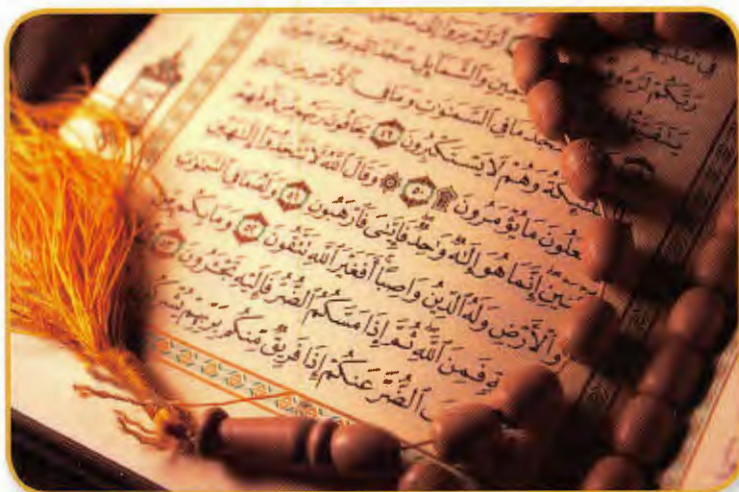 فِي تَقَلُّبِهِمْ
رَبَّكُمْ لَرَءُوفٌ أَوَلَمْ يَرَوْا إِلَىٰ مَا خَلَقَ
يَتَفَيَّؤُا الْيَمِينِ وَالشَّمَائِلِ سُجَّدًا لِلَّهِ وَهُمْ
يَسْجُدُ مَا فِي السَّمَٰوَٰتِ وَمَا فِي الْأَرْضِ مِن دَابَّةٍ
وَالْمَلَٰئِكَةُ وَهُمْ لَا يَسْتَكْبِرُونَ ٤٩ يَخَافُونَ رَبَّهُم مِّن فَوْقِهِمْ
وَيَفْعَلُونَ مَا يُؤْمَرُونَ ۩ ٥٠ ۞ وَقَالَ اللَّهُ لَا تَتَّخِذُوا إِلَٰهَيْنِ
اثْنَيْنِ إِنَّمَا هُوَ إِلَٰهٌ وَٰحِدٌ فَإِيَّٰيَ فَارْهَبُونِ ٥١ وَلَهُ مَا فِي السَّمَٰوَٰتِ
وَالْأَرْضِ وَلَهُ الدِّينُ وَاصِبًا أَفَغَيْرَ اللَّهِ تَتَّقُونَ ٥٢ وَمَا بِكُم مِّن
فَمِنَ اللَّهِ ثُمَّ إِذَا مَسَّكُمُ الضُّرُّ فَإِلَيْهِ تَجْـَٔرُونَ ٥٣
الضُّرَّ عَنكُمْ إِذَا فَرِيقٌ مِّنكُم بِرَبِّهِمْ يُشْرِكُونَ